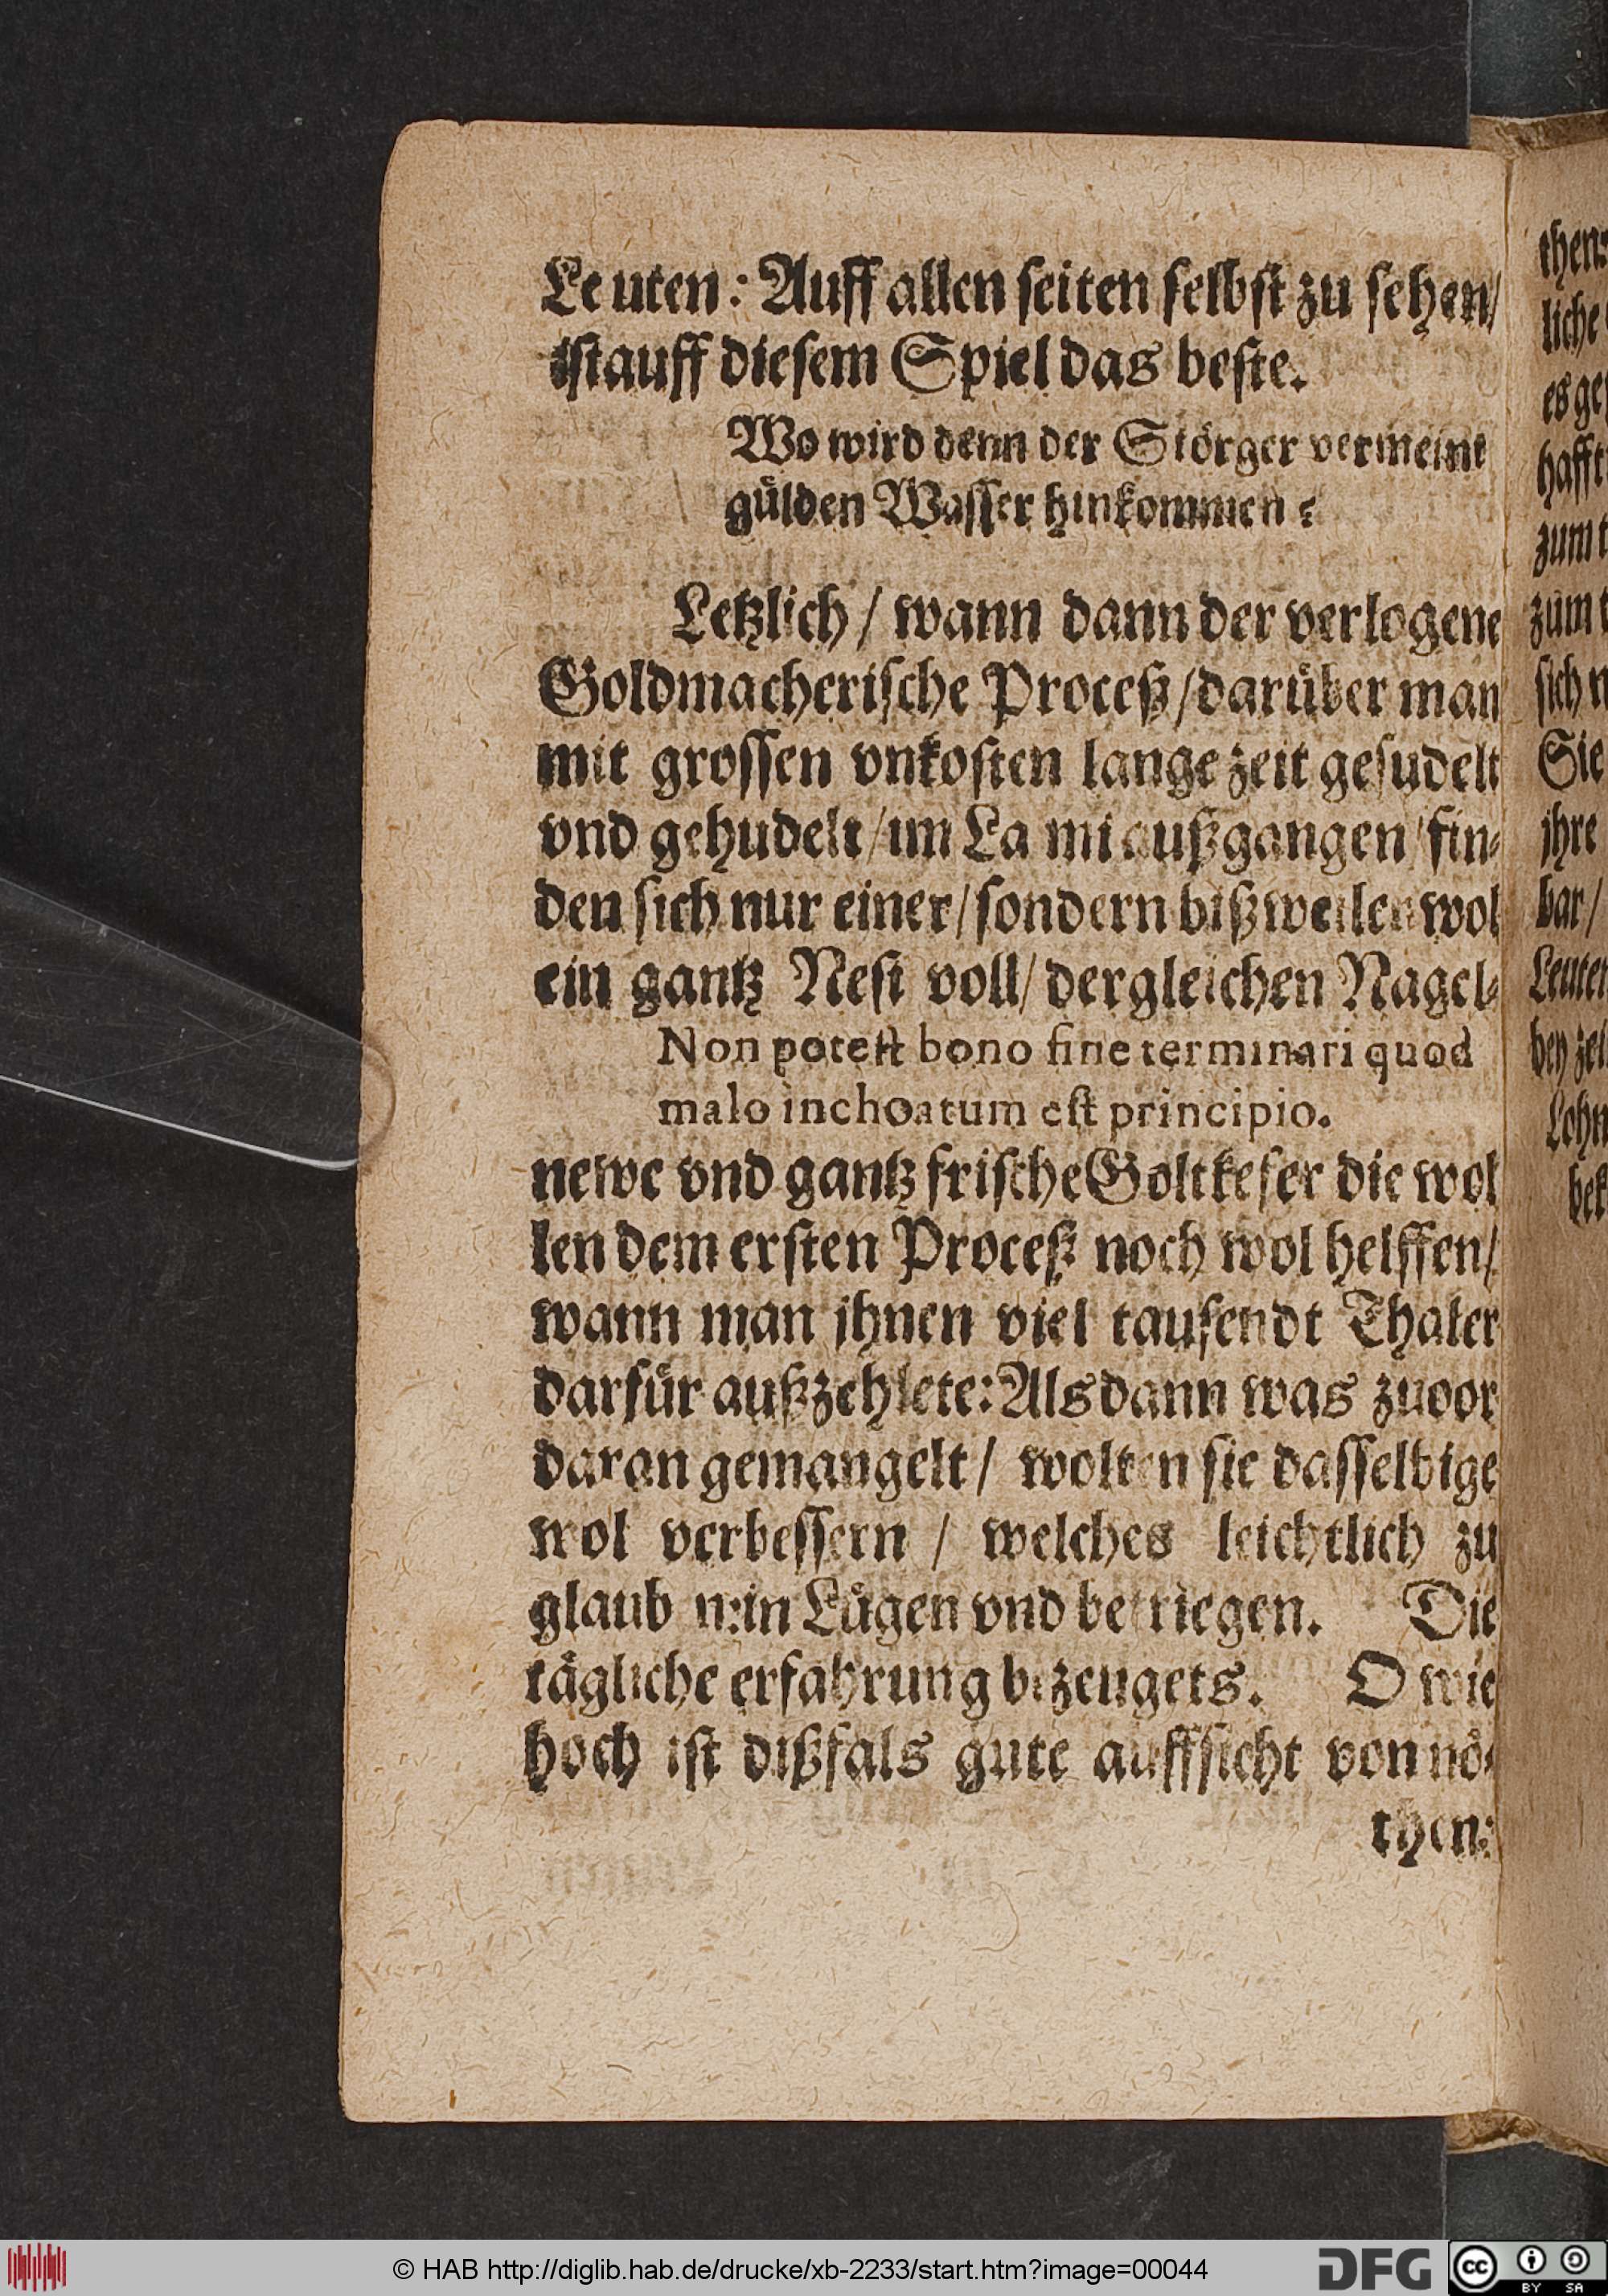 Leuten: Auff allen seiten selbst zu sehen/
ist auff diesem Spiel das beste.
Wo wird denn der Störger vermeint
gülden Wasser hinkommen?
Letzlich / wann dann der verlogene
Goldmacherische Proceß / darüber man
mit grossen vnkosten lange zeit gesudelt
vnd gehudelt / im La mi außgangen / fin-
den sich nur einer / sondern bißweilen wol
ein gantz Nest voll / dergleichen Nagel-
Non potest bono fine terminari quod
malo inchoatum est principio.
newe vnd gantz frische Goltkefer die wol
len dem ersten Proceß noch wol helffen/
wann man jhnen viel tausendt Thaler
darfür außzehlete: Als dann was zuvor
daran gemangelt / wolten sie dasselbige
wol verbessern / welches leichtlich zu
glaub n: in Lügen vnd betriegen. Die
tägliche erfahrung bezeugets. O wie
hoch ist dißfals gute auffsicht von nö-
then:
then:
liche
es ge
hafft
zum t
zum t
sich n
Sie
jhre
bar /
Leuten
bey zei
Lohn
bek
© HAB http://diglib.hab.de/drucke/xb-2233/start.htm?image=00044
DFG
cc
BY SA